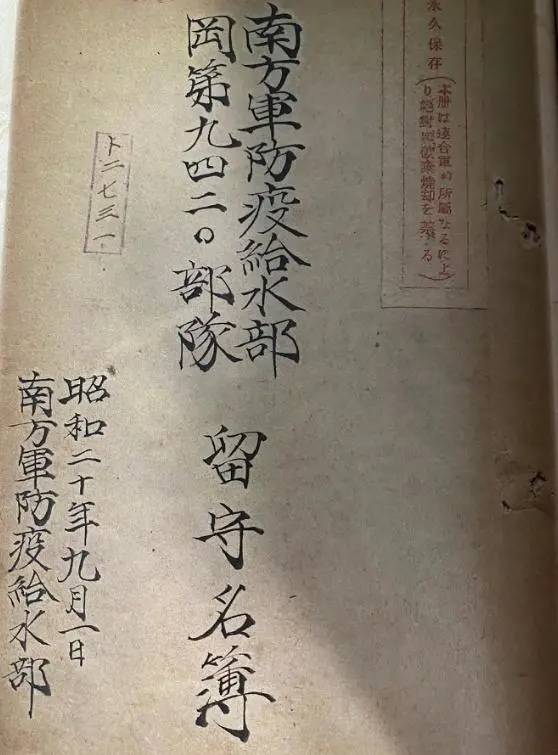 永久保存
(本冊は連合軍的所屬なるに上
り絶對ニ廃棄焼却を禁ずる)
南方軍防疫給水部
岡第九四二〇部隊
留守名簿
ト二七三一
昭和二十年九月一日
南方軍防疫給水部